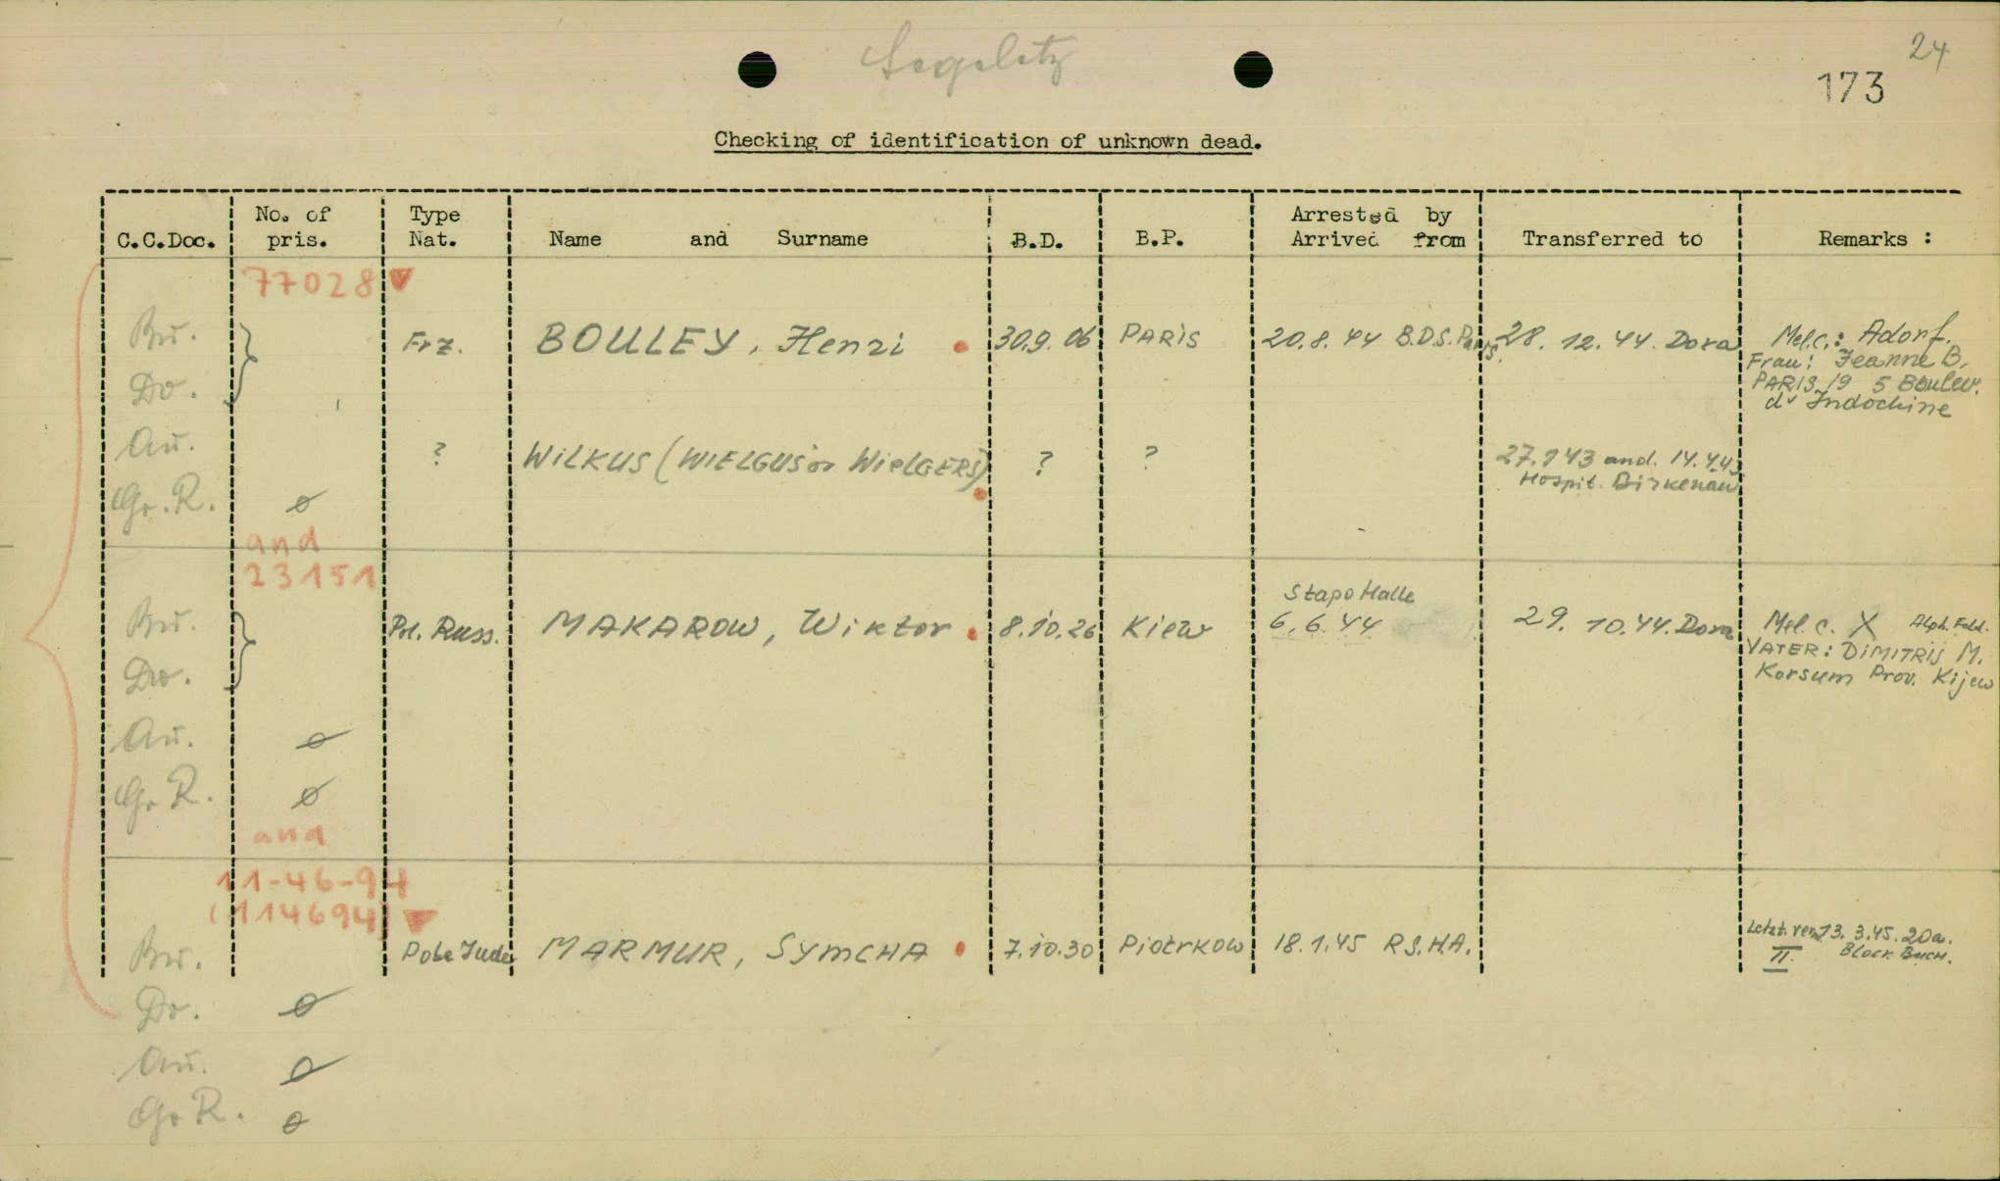 Segelitz
24
173
Checking of identification of unknown dead.
C.C.Doc. No. of pris. Type Nat. Name and Surname B.D. B.P. Arrested by Arrived from Transferred to Remarks :
77028
Bu. Frz. BOULEY, Henri 30.9.06 PARIS 20.8.44 B.D.S. Paris. 28.12.44. Dora Mel.c.: Adorf.
Frau: Jeanne B.
Do. PARIS 19 5 Boulev.
d' Indochine
Au. ? WILKUS (WIELGUS or WielGERS) ? ? 27.1 43 and. 14.4.43
Hospit. Birkenau
Gr. R. ø
and
23151
Stapo Halle
Bu. Pol. Russ. MAKAROW, Wiktor 8.10.26 Kiew 6.6.44 29.10.44. Dora Mel. c. X Alph. Fold.
VATER: DIMITRIJ M.
Do. Korsum Prov. Kijew
Au. ø
Gr. R. ø
and
11-46-94
(114694)
Bu. Pole Jude MARMUR, SYMCHA 7.10.30 Piotrkow 18.1.45 R.S.H.A. 13.3.45. 20a.
II Block Buch.
Do. ø
Au. ø
Gr. R. ø